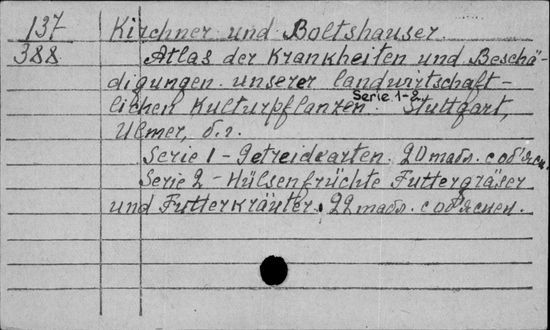 137 Kirchner und Boltshauser.
388 Atlas der Krankheiten und Beschä-
digungen unserer landwirtschaft-
lichen Kulturpflanzen. Serie 1-2. Stuttgart,
Ulmer, б.г.
Serie 1 - Getreidearten. 20 табл. с объясн.
Serie 2 - Hülsenfrüchte Futtergräser
und Futterkräuter. 22 табл. с объяснен.